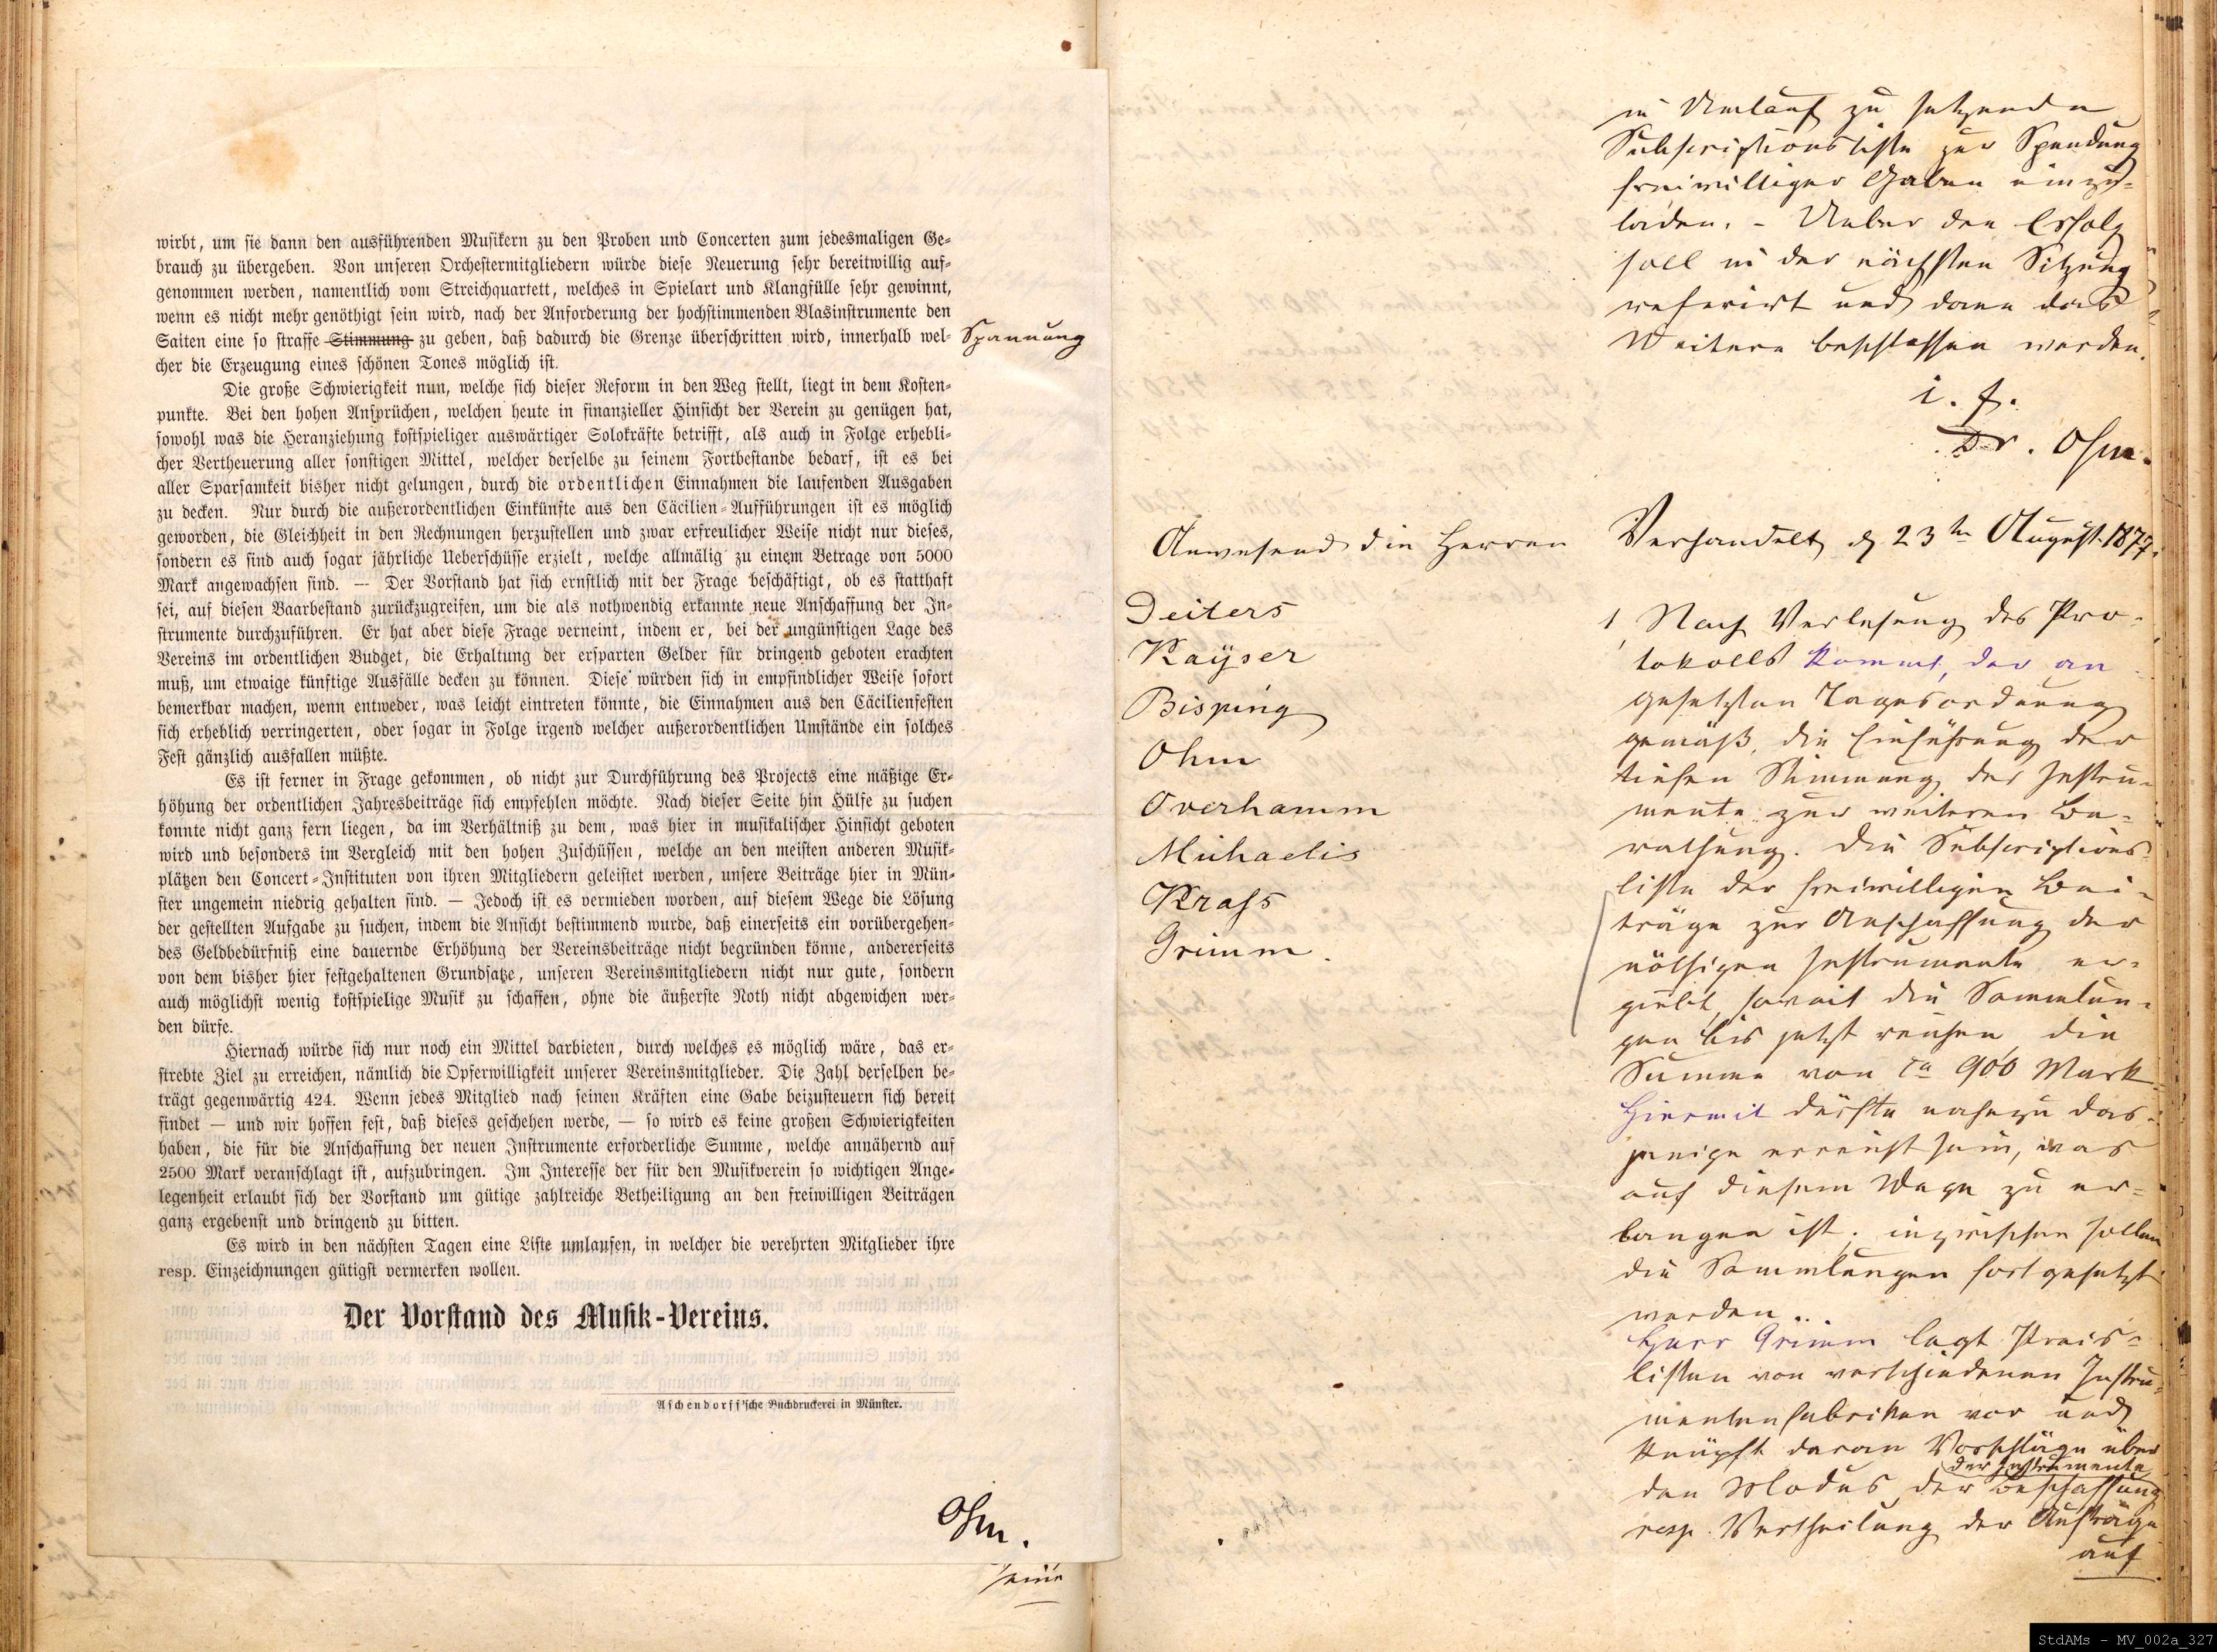 wirbt, um sie dann den ausführenden Musikern zu den Proben und Concerten zum jedesmaligen Ge-
brauch zu übergeben. Von unseren Orchestermitgliedern würde diese Neuerung sehr bereitwillig auf-
genommen werden, namentlich vom Streichquartett, welches in Spielart und Klangfülle sehr gewinnt,
wenn es nicht mehr genöthigt sein wird, nach der Anforderung der hochstimmenden Blasinstrumente den
Saiten eine so straffe Stimmung zu geben, daß dadurch die Grenze überschritten wird, innerhalb wel- Spannung
cher die Erzeugung eines schönen Tones möglich ist.
Die große Schwierigkeit nun, welche sich dieser Reform in den Weg stellt, liegt in dem Kosten-
punkte. Bei den hohen Ansprüchen, welchen heute in finanzieller Hinsicht der Verein zu genügen hat,
sowohl was die Heranziehung kostspieliger auswärtiger Solokräfte betrifft, als auch in Folge erhebli-
cher Vertheuerung aller sonstigen Mittel, welcher derselbe zu seinem Fortbestande bedarf, ist es bei
aller Sparsamkeit bisher nicht gelungen, durch die ordentlichen Einnahmen die laufenden Ausgaben
zu decken. Nur durch die außerordentlichen Einkünfte aus den Cäcilien-Aufführungen ist es möglich
geworden, die Gleichheit in den Rechnungen herzustellen und zwar erfreulicher Weise nicht nur dieses,
sondern es sind auch sogar jährliche Ueberschüsse erzielt, welche allmälig zu einem Betrage von 5000
Mark angewachsen sind. — Der Vorstand hat sich ernstlich mit der Frage beschäftigt, ob es statthaft
sei, auf diesen Baarbestand zurückzugreifen, um die als nothwendig erkannte neue Anschaffung der In-
strumente durchzuführen. Er hat aber diese Frage verneint, indem er, bei der ungünstigen Lage des
Vereins im ordentlichen Budget, die Erhaltung der ersparten Gelder für dringend geboten erachten
muß, um etwaige künftige Ausfälle decken zu können. Diese würden sich in empfindlicher Weise sofort
bemerkbar machen, wenn entweder, was leicht eintreten könnte, die Einnahmen aus den Cäcilienfesten
sich erheblich verringerten, oder sogar in Folge irgend welcher außerordentlichen Umstände ein solches
Fest gänzlich ausfallen müßte.
Es ist ferner in Frage gekommen, ob nicht zur Durchführung des Projects eine mäßige Er-
höhung der ordentlichen Jahresbeiträge sich empfehlen möchte. Nach dieser Seite hin Hülfe zu suchen
konnte nicht ganz fern liegen, da im Verhältniß zu dem, was hier in musikalischer Hinsicht geboten
wird und besonders im Vergleich mit den hohen Zuschüssen, welche an den meisten anderen Musik-
plätzen den Concert-Instituten von ihren Mitgliedern geleistet werden, unsere Beiträge hier in Mün-
ster ungemein niedrig gehalten sind. — Jedoch ist es vermieden worden, auf diesem Wege die Lösung
der gestellten Aufgabe zu suchen, indem die Ansicht bestimmend wurde, daß einerseits ein vorübergehen-
des Geldbedürfniß eine dauernde Erhöhung der Vereinsbeiträge nicht begründen könne, andererseits
von dem bisher hier festgehaltenen Grundsatze, unseren Vereinsmitgliedern nicht nur gute, sondern
auch möglichst wenig kostspielige Musik zu schaffen, ohne die äußerste Noth nicht abgewichen wer-
den dürfe.
Hiernach würde sich nur noch ein Mittel darbieten, durch welches es möglich wäre, das er-
strebte Ziel zu erreichen, nämlich die Opferwilligkeit unserer Vereinsmitglieder. Die Zahl derselben be-
trägt gegenwärtig 424. Wenn jedes Mitglied nach seinen Kräften eine Gabe beizusteuern sich bereit
findet — und wir hoffen fest, daß dieses geschehen werde, — so wird es keine großen Schwierigkeiten
haben, die für die Anschaffung der neuen Instrumente erforderliche Summe, welche annähernd auf
2500 Mark veranschlagt ist, aufzubringen. Im Interesse der für den Musikverein so wichtigen Ange-
legenheit erlaubt sich der Vorstand um gütige zahlreiche Betheiligung an den freiwilligen Beiträgen
ganz ergebenst und dringend zu bitten.
Es wird in den nächsten Tagen eine Liste umlaufen, in welcher die verehrten Mitglieder ihre
resp. Einzeichnungen gütigst vermerken wollen.
Der Vorstand des Musik-Vereins.
Aschendorff'sche Buchdruckerei in Münster.
Ohm.
in Umlauf zu setzende
Subscriptionsliste zur Spendung
freiwilliger Gaben einzu-
laden. - Ueber den Erfolg
soll in der nächsten Sitzung
referirt und dann das
Weitere beschlossen werden.
i. f.
Dr. Ohm.
Anwesend die Herren
Deiters
Kayser
Bisping
Ohm
Overhamm
Michaelis
Krass
Grimm.
Verhandelt d 23ten August 1877.
1, Nach Verlesung des Pro-
tokolls kommt, der an
gesetzten Tagesordnung
gemäß, die Einführung der
tiefen Stimmung der Instru-
mente zur weiteren Be-
rathung. Die Subscriptions-
liste der freiwilligen Bei-
träge zur Anschaffung der
nöthigen Instrumente er-
giebt, soweit die Sammlun-
gen bis jetzt reichen, die
Summe von ca 900 Mark
Hiermit dürfte nahezu das-
jenige erreicht sein, was
auf diesem Wege zu er-
langen ist; inzwischen sollen
die Sammlungen fortgesetzt
werden.
Herr Grimm legt Preis-
listen von verschiedenen Instru-
mentenfabriken vor und
knüpft daran Vorschläge über
den Modus der Beschaffung
der Instrumente
resp. Vertheilung der Aufträge
auf
StdAMs - MV_002a_327